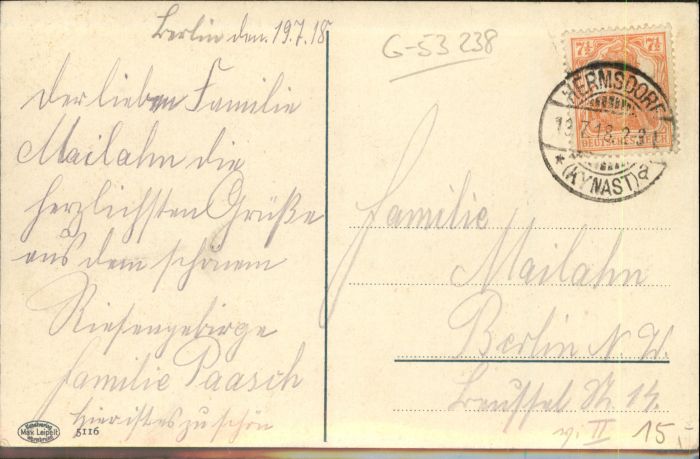 Berlin den 19.7.18
G-53 238
Der lieben Familie
Mailahn die
herzlichsten Grüße
aus dem schönem
Riesengebirge
Familie Paasch
hier ist es zu schön
7½ 7½
DEUTSCHES REICH
HERMSDORF
(KYNAST) a
Familie
Mailahn
Berlin N.W.
Beussel St. 14.
v. II
15,-
Max Leipelt
5116